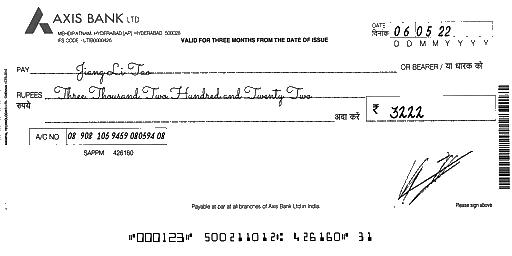 AXIS BANK LTD
MEHDIPATNAM, HYDERABAD [AP] HYDERABAD 500028
IFS CODE -
VALID FOR THREE MONTHS FROM THE DATE OF ISSUE
DATE
दिनांक 06 05 22
D D M M Y Y Y Y
PAY Jiang Li Tao OR BEARER / या धारक को
RUPEES Three Thousand Two Hundred and Twenty Two
रुपये अदा करें ₹ 3222
A/C NO 08 908 105 9469 080594 08
SAPPM 426160
Payable at par at all branches of Axis Bank Ltd in India.
Please sign above
"000123" 500211012: 426160" 31